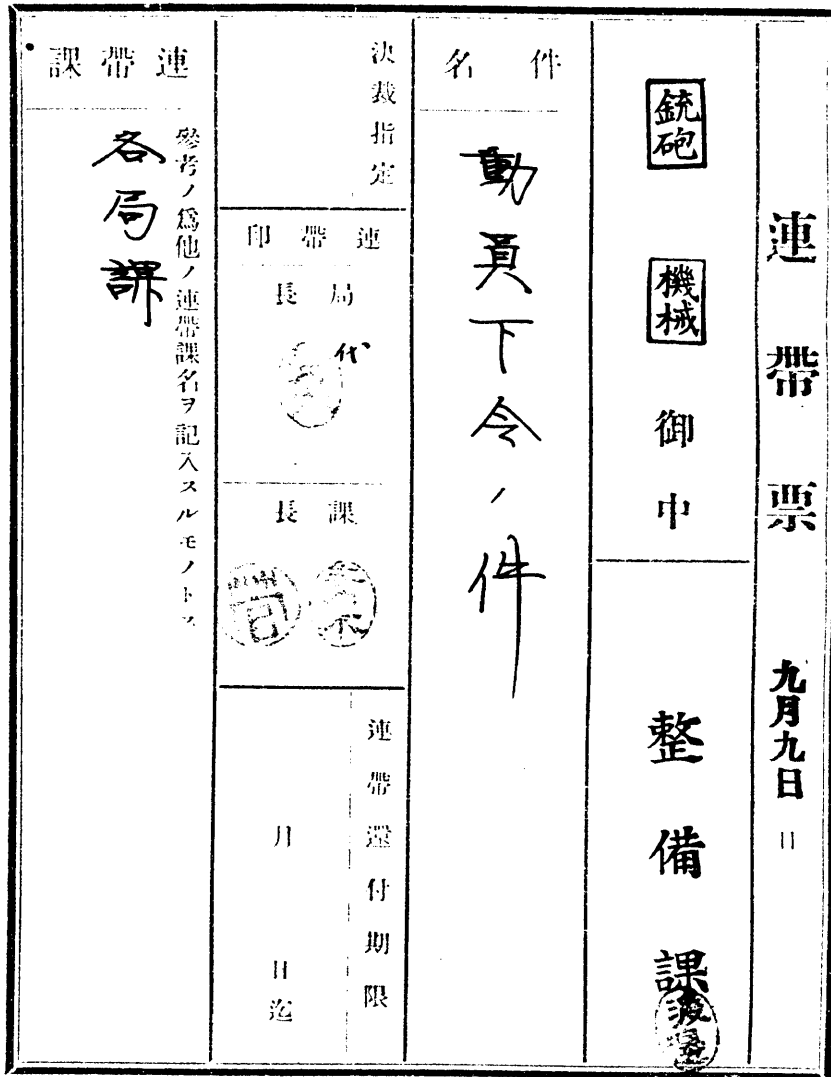 連帶票
九月九日
日
銃砲
機械
御中
整備課
件名
動員下令ノ件
決裁指定
連帶印
局長
代
課長
連帶還付期限
月 日迄
連帶課
參考ノ爲他ノ連帶課名ヲ記入スルモノトス
各局課